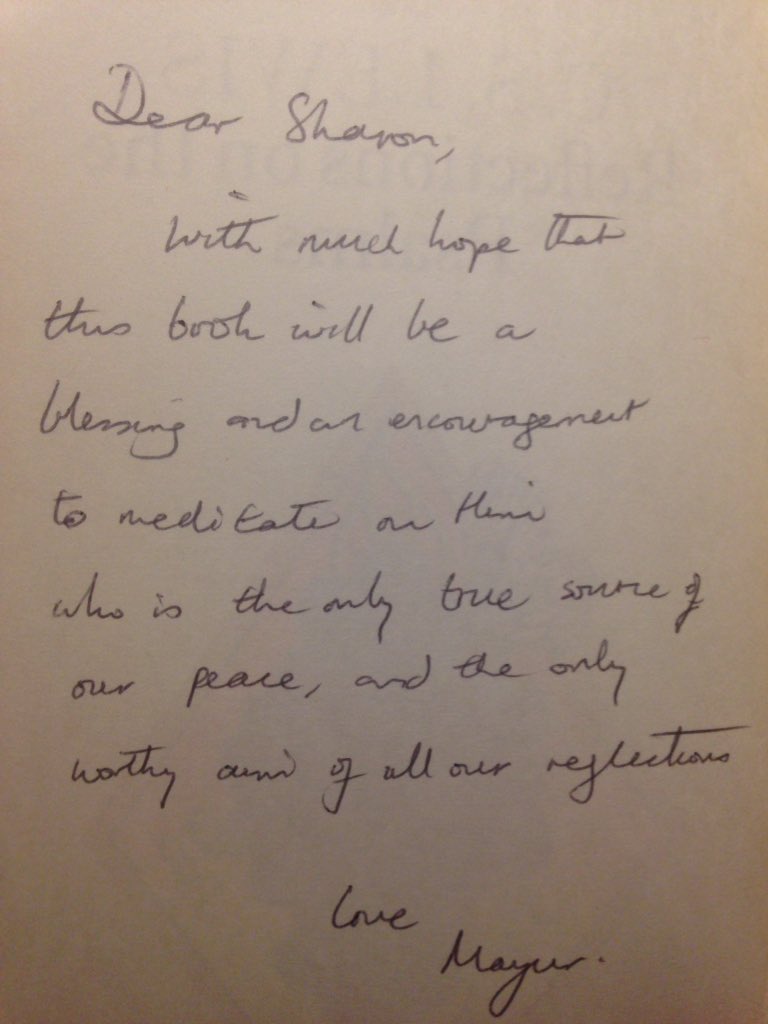 Dear Sharon,
With much hope that
this book will be a
blessing and an encouragement
to meditate on Him
who is the only true source of
our peace, and the only
worthy aim of all our reflections
Love
Mayur.